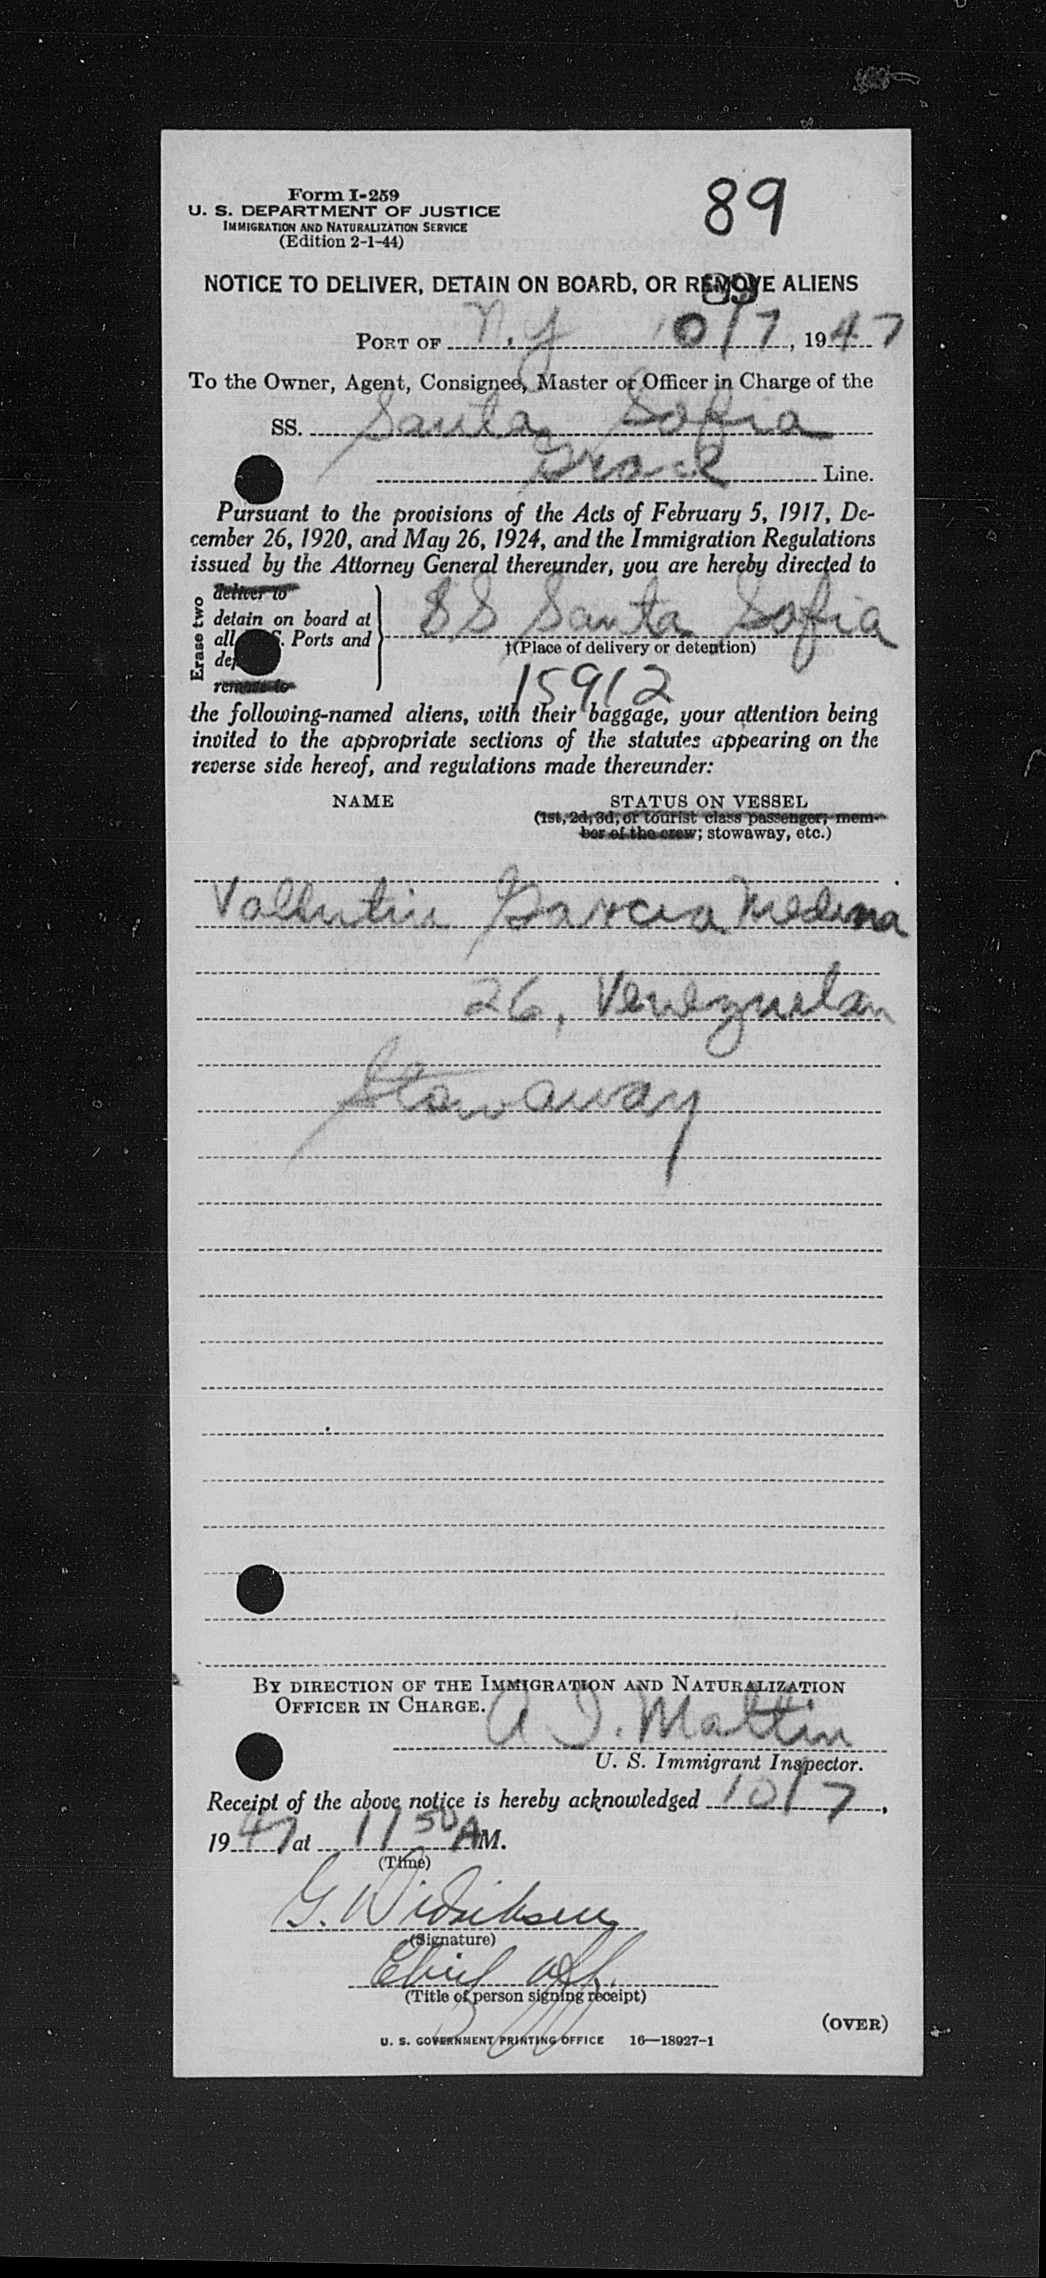 Form I-259
U. S. DEPARTMENT OF JUSTICE
IMMIGRATION AND NATURALIZATION SERVICE
(Edition 2-1-44)
89
NOTICE TO DELIVER, DETAIN ON BOARD, OR REMOVE ALIENS
89
PORT OF N.Y 10/7, 1947
To the Owner, Agent, Consignee, Master or Officer in Charge of the
SS. Santa Sofia
Grace Line.
Pursuant to the provisions of the Acts of February 5, 1917, De-
cember 26, 1920, and May 26, 1924, and the Immigration Regulations
issued by the Attorney General thereunder, you are hereby directed to
Erase two
deliver to
detain on board at
all Ports and
remove to
SS Santa Sofia
†(Place of delivery or detention)
15912
the following-named aliens, with their baggage, your attention being
invited to the appropriate sections of the statutes appearing on the
reverse side hereof, and regulations made thereunder:
NAME STATUS ON VESSEL
(1st, 2d, 3d, or tourist class passenger; mem-
ber of the crew; stowaway, etc.)
Vallentin Garcia Medina
26, Venezuelan
Stowaway
BY DIRECTION OF THE IMMIGRATION AND NATURALIZATION
OFFICER IN CHARGE.
A I. Mattin
U. S. Immigrant Inspector.
Receipt of the above notice is hereby acknowledged 10/7,
1947 at 11 50 AM.
(Time)
G. Didriksen
(Signature)
Chief Off.
(Title of person signing receipt)
(OVER)
U. S. GOVERNMENT PRINTING OFFICE 16—18927-1